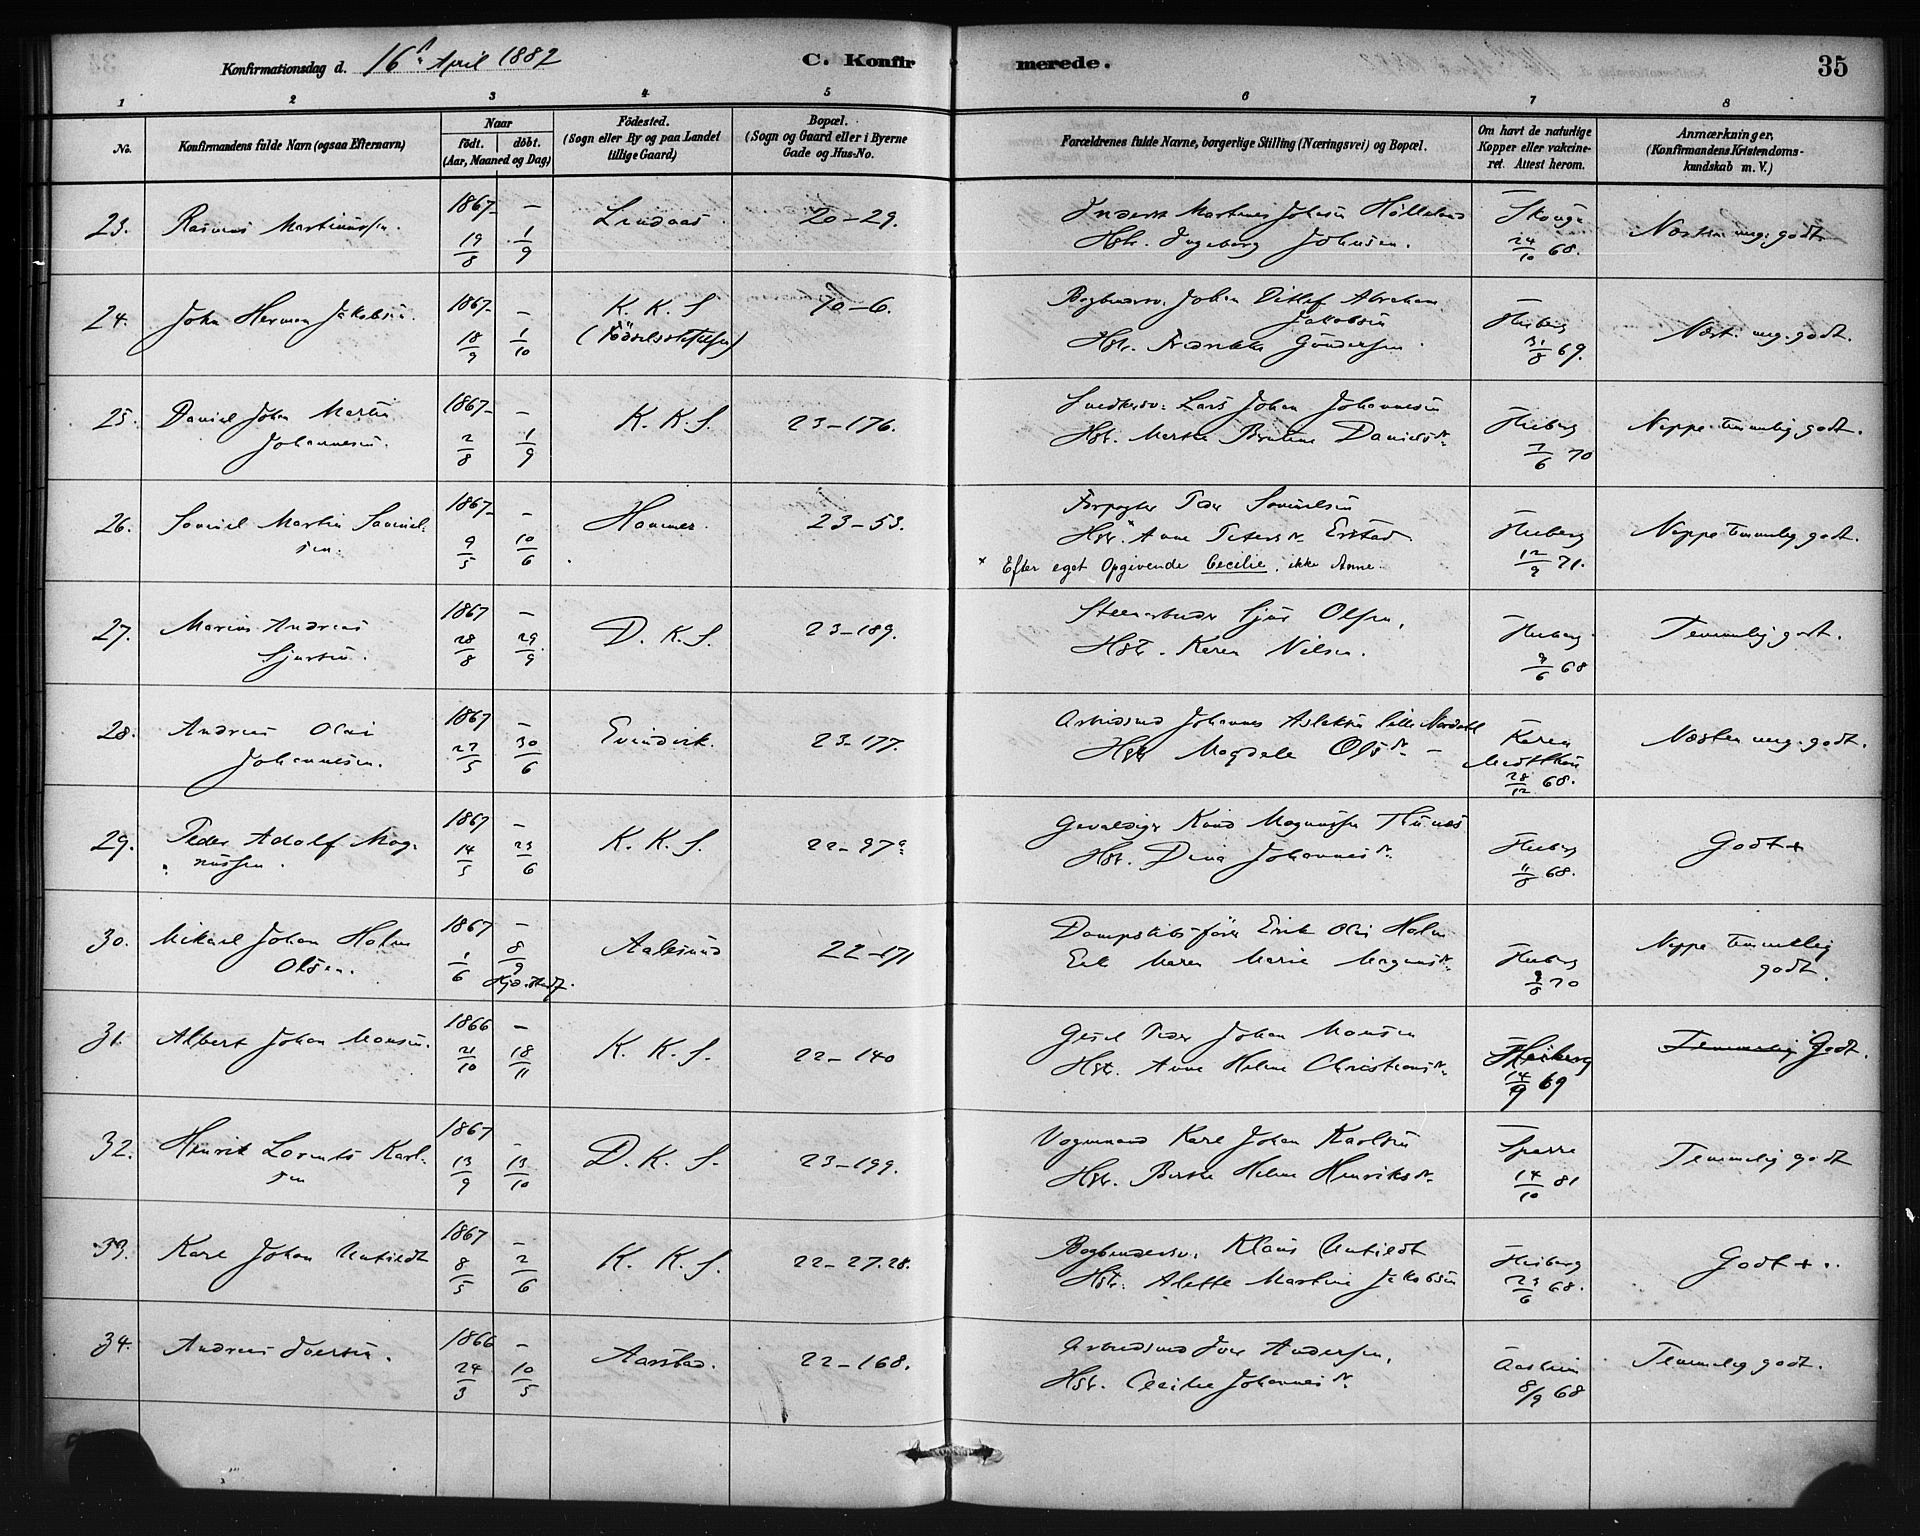 Konfirmationsdag d. 16d April 1882
C. Konfirmerede.
35
1 2 3 4 5 6 7 8
No.
Konfirmandens fulde Navn (ogsaa Efternavn)
Naar
födt. döbt.
(Aar, Maaned og Dag)
Födested.
(Sogn eller By og paa Landet
tillige Gaard)
Bopæl.
(Sogn og Gaard eller i Byerne
Gade og Hus-No.
Forældrenes fulde Navne, borgerlige Stilling (Næringsvei) og Bopæl.
Om havt de naturlige
Kopper eller vakcine-
ret. Attest herom.
Anmærkninger.
(Konfirmandens Kristendoms-
kundskab m. V.)
23. Rasmus Martinussen. 1867 19/8 – 1/9 Lindaas. 20–29.
Martinus Johnsen Hölleland
Hstr. Ingeborg Johnsen.
24/10 68.
Næsten meg. godt
24. John Herman Jakobsen. 1867 18/9 – 1/10 K. K. S.
(Födselsstiftelsen) 10–6.
Bogbindersv. Johan Ditlef Abraham
Jakobsen
Hstr. Fredrikke Gundersen.
Heiberg
31/8 69.
Næst. meg. godt.
25. Daniel Johan Martin
Johannesen. 1867 2/8 – 1/9 K. K. S. 23–176.
Snedkersv. Lars Johan Johannesen
Hstr. Marthe Daniels dr.
Heiberg
7/6 70
Neppe temmelig godt.
26. Samuel Martin Samuel-
sen. 1867 9/5 – 10/6 Hammer. 23–53.
Forpagter Peder Samuelsen
Hstr. * Anne Peters dr. Erstad.
* Efter eget Opgivende Cecilie, ikke Anne.
Heiberg
12/9 71.
Neppe temmelig godt.
27. Marius Andreas
Sjursen. 1867 28/8 – 29/9 D. K. S. 23–189.
Stenarbeider Sjur Olsen,
Hstr. Karen Nilsen.
Heiberg
9/6 68
Temmelig godt.
28. Andreas Olai
Johannesen. 1867 27/5 – 30/6 Evindvik. 23–177.
Arbeidsmd Johannes Aslaksen lille Nordahl
Hstr Magdele Ols dr –
Karen
28/12 68.
Næsten meg. godt.
29. Peder Adolf Mag-
nussen. 1867 14/5 – 23/6 K. K. S. 22–97a
Gevaldiger Knud Magnussen
Hstr. Dina Johannes dr.
Heiberg
11/8 68.
Godt +
30. Mikael Johan Holm
Olsen. 1867 1/6 – 8/9 Aalesund 22–171
Dampskibsförer Erik Olai Holm
Maren Marie Magnus dr.
Heiberg
9/8 70
Neppe temmelig
godt.
31. Albert Johan Monsen. 1866 21/10 – 18/11 K. K. S. 22–140
Gesel Peder Johan Monsen
Hstr. Anne Helene Christians dr.
Heiberg
14/9 69
Temmelig Godt.
32. Henrik Lorents Karl-
sen 1867 13/9 – 13/10 D. K. S. 23–199.
Vognmand Karl Johan Karlsen
Hstr. Berthe Helene Henriks dr.
Sparre
14/10 81
Temmelig godt
33. Karl Johan Untiedt 1867 8/5 – 2/6 K. K. S. 22–27.28.
Bogbindersv. Klaus Untiedt
Hstr. Alette Martine Jakobsen
Heiberg
23/6 68.
Godt +.
34. Andreas Iversen. 1866 24/3 – 10/5 Aarstad. 22–168.
Arbeidsmd Iver Andersen,
Hstr. Cecilie Johannes dr.
8/9 68
Temmelig godt.